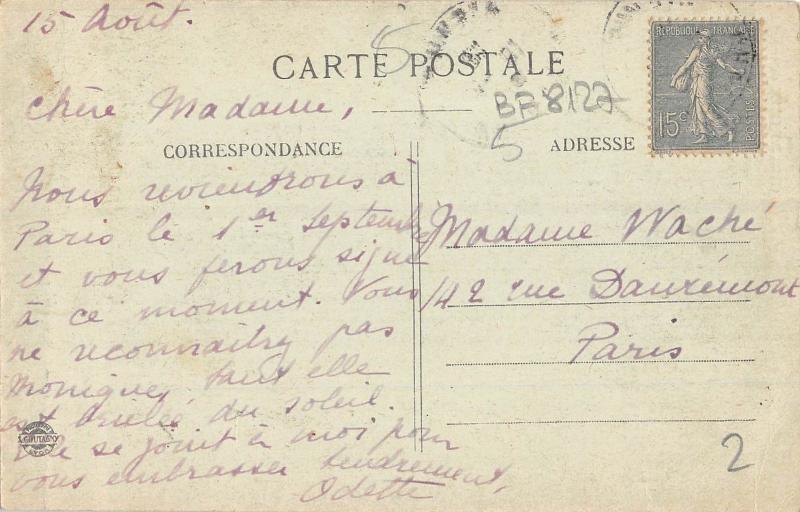 15 Août.
5
CARTE POSTALE
REPUBLIQUE FRANÇAISE
15c
POSTES
BF8127
5
Chère Madame,
CORRESPONDANCE
Nous reviendrons à
Paris le 1er Septembre
et vous ferons signe
à ce moment. Vous
ne reconnaîtrez pas
Monique, tant elle
est brûlée du soleil.
Elle se joint à moi pour
vous embrasser tendrement,
Odette
ADRESSE
Madame Waché
142 rue Danrémont
Paris
2